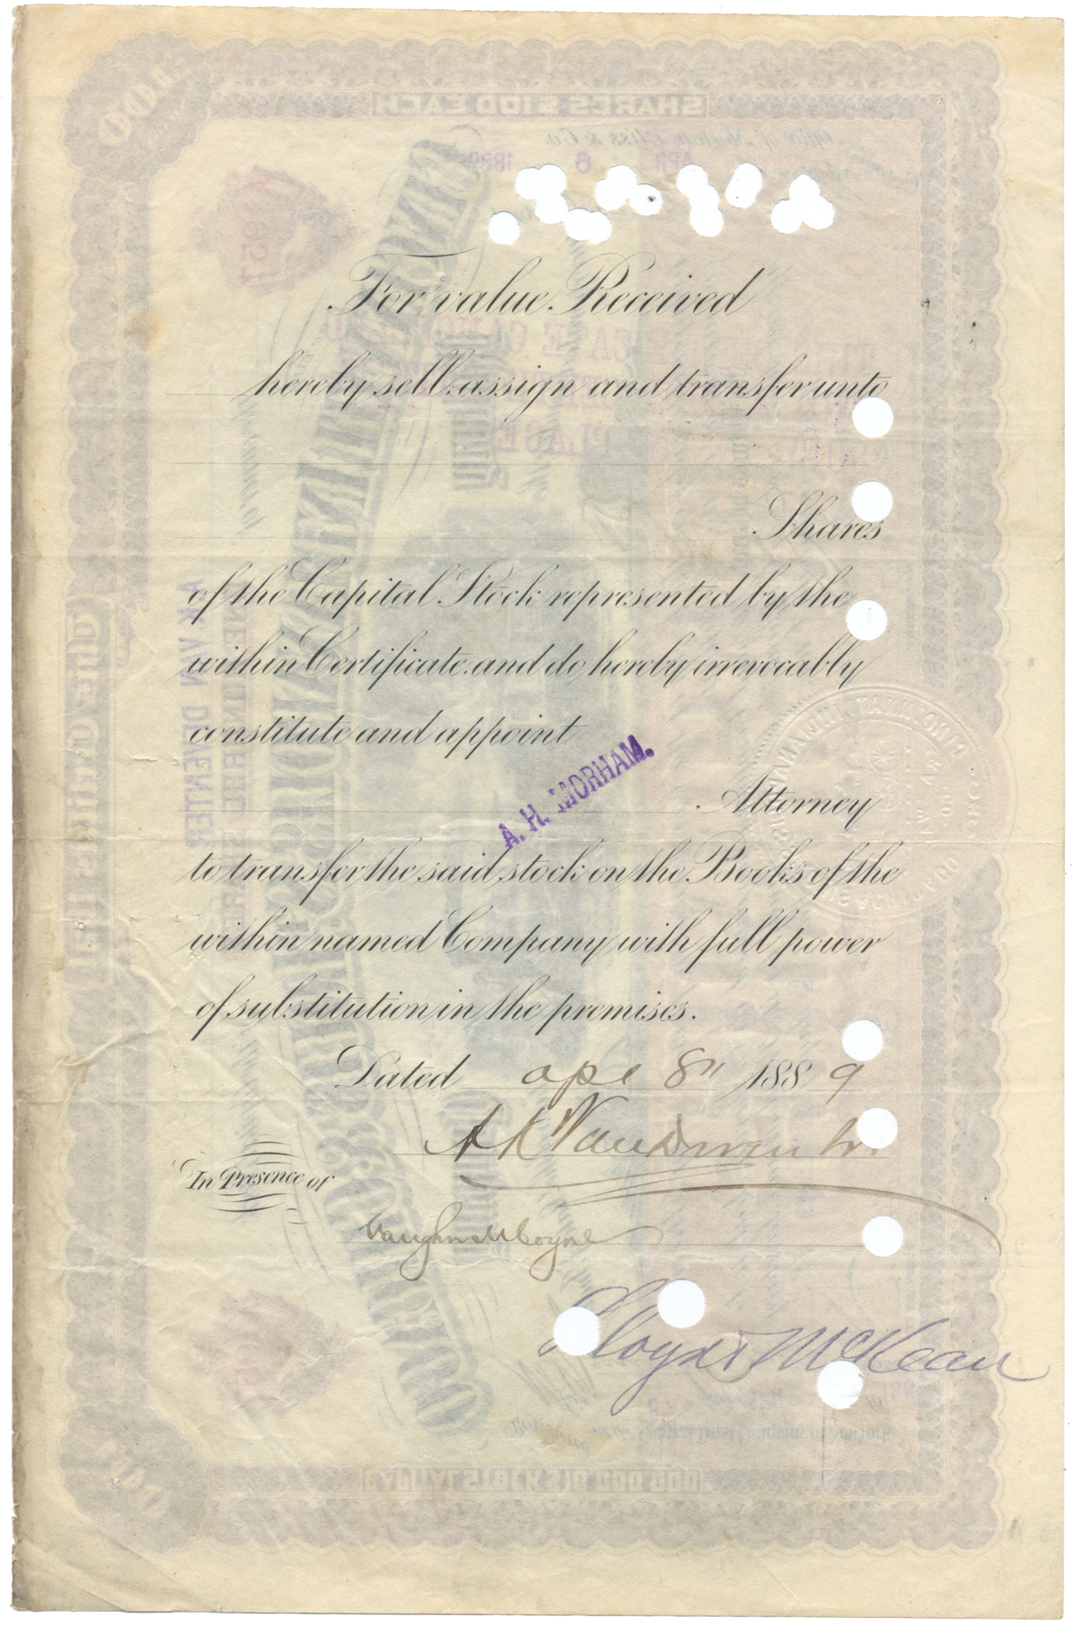 For value Received
hereby sell, assign and transfer unto
Shares
of the Capital Stock represented by the
within Certificate and do hereby irrevocably
constitute and appoint
A. H. MORHAM.
Attorney
to transfer the said stock on the Books of the
within named Company with full power
of substitution in the premises.
Dated apl 8" 1889
A K Van Deventer
In Presence of
Lloyd McKean